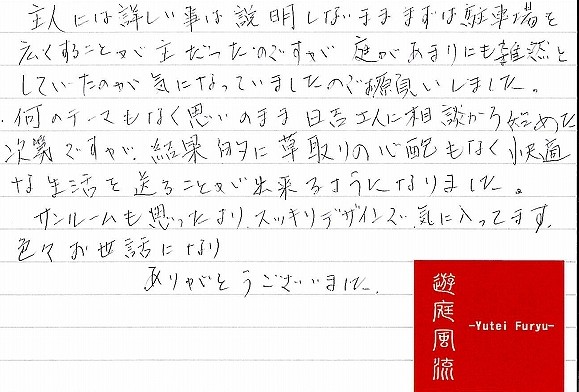 主人には詳しい事は説明しないまままずは駐車場を
広くすることが主だったのですが庭があまりにも雑然と
していたのが気になっていましたのでお願いしました。
何のテーマもなく思いのまま日吉さんに相談から始めた
次第ですが、結果的に草取りの心配もなく快適
な生活を送ることが出来るようになりました。
サンルームも思ったよりスッキリデザインで気に入ってます。
色々お世話になり
ありがとうございました。
遊庭風流
-Yutei Furyu-